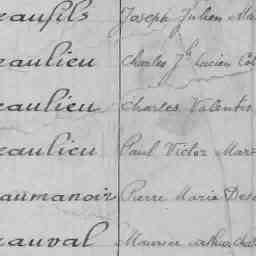 eaufils Joseph Julien Ma
eaulieu Charles Jh Lucien Cél
eaulieu Charles Valentin
eaulieu Paul Victor Mar
eaumanoir Pierre Marie Dés
eauval Maurice Arthur Cha